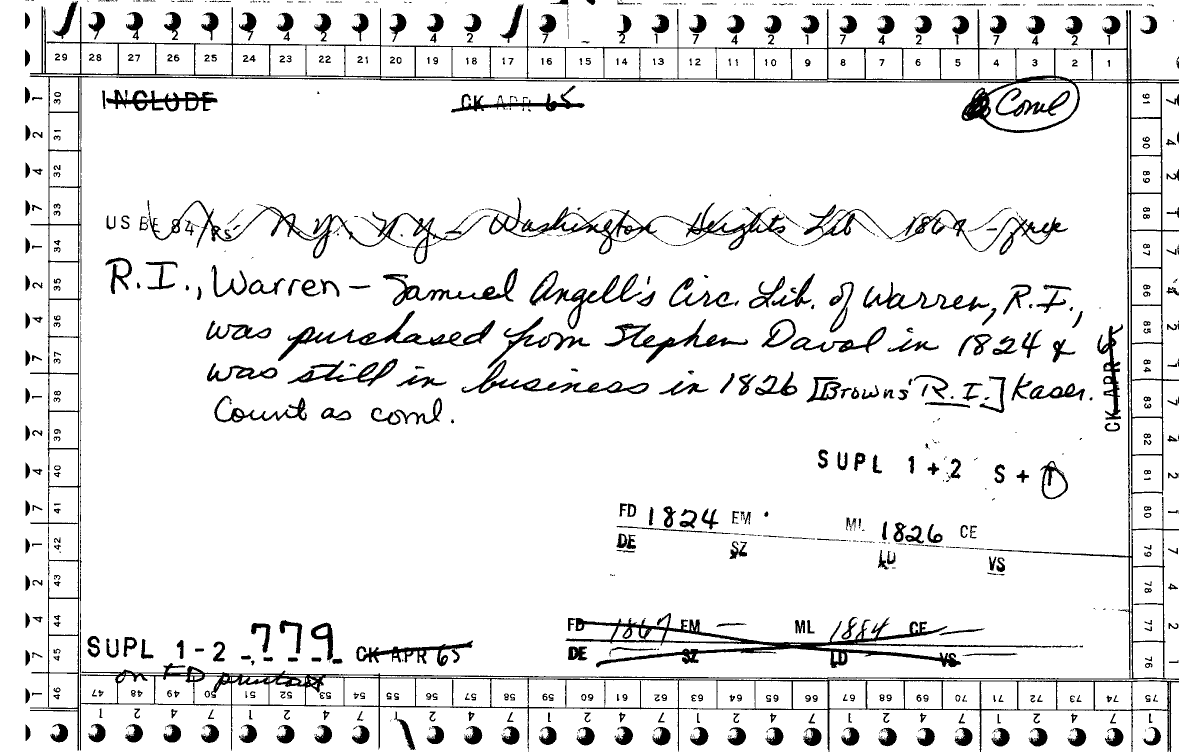 7 4 2 1 7 4 2 1 7 4 2 1 7 2 1 7 4 2 1 7 4 2 1 7 4 2 1
29 28 27 26 25 24 23 22 21 20 19 18 17 16 15 14 13 12 11 10 9 8 7 6 5 4 3 2 1
INCLUDE CK APR 65 Coml
US BE 84/85 N.Y., N.Y. – Washington Heights Lib 1864 – free
R.I., Warren – Samuel Angell's Circ. Lib. of Warren, R.I.,
was purchased from Stephen Davol in 1824 &
was still in business in 1826 [Browns' R.I.] Kaser.
Count as coml.
CK APR 65
SUPL 1+2 S + T
FD 1824 EM ML 1826 CE
DE SZ LD VS
FD 1867 EM — ML 1884 CE —
DE SZ LD VS
SUPL 1-2 779 CK APR 65
on FD printout
30 31 32 33 34 35 36 37 38 39 40 41 42 43 44 45 46
91 90 89 88 87 86 85 84 83 82 81 80 79 78 77 76 75
47 48 49 50 51 52 53 54 55 56 57 58 59 60 61 62 63 64 65 66 67 68 69 70 71 72 73 74
1 2 4 7 1 2 4 7 1 2 4 7 1 2 4 7 1 2 4 7 1 2 4 7 1 2 4 7